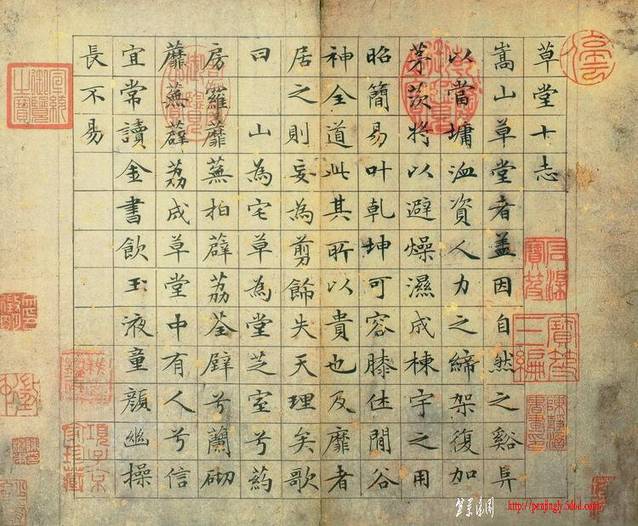 草堂十志
嵩山草堂者盖因自然之谿阜
以當墉洫資人力之締架復加
茅茨将以避燥濕成棟宇之用
昭簡易叶乾坤可容膝休閒谷
神全道此其所以貴也及靡者
居之則妄為剪餙失天理矣歌
曰山為宅草為堂芝室兮葯
房羅蘼蕪拍薜荔荃壁兮蘭砌
蘼蕪薜荔成草堂中有人兮信
宜常讀金書飲玉液童顏幽操
長不易
石渠寶笈
寶笈三編
宣統御覽之寶
項子京家珍藏